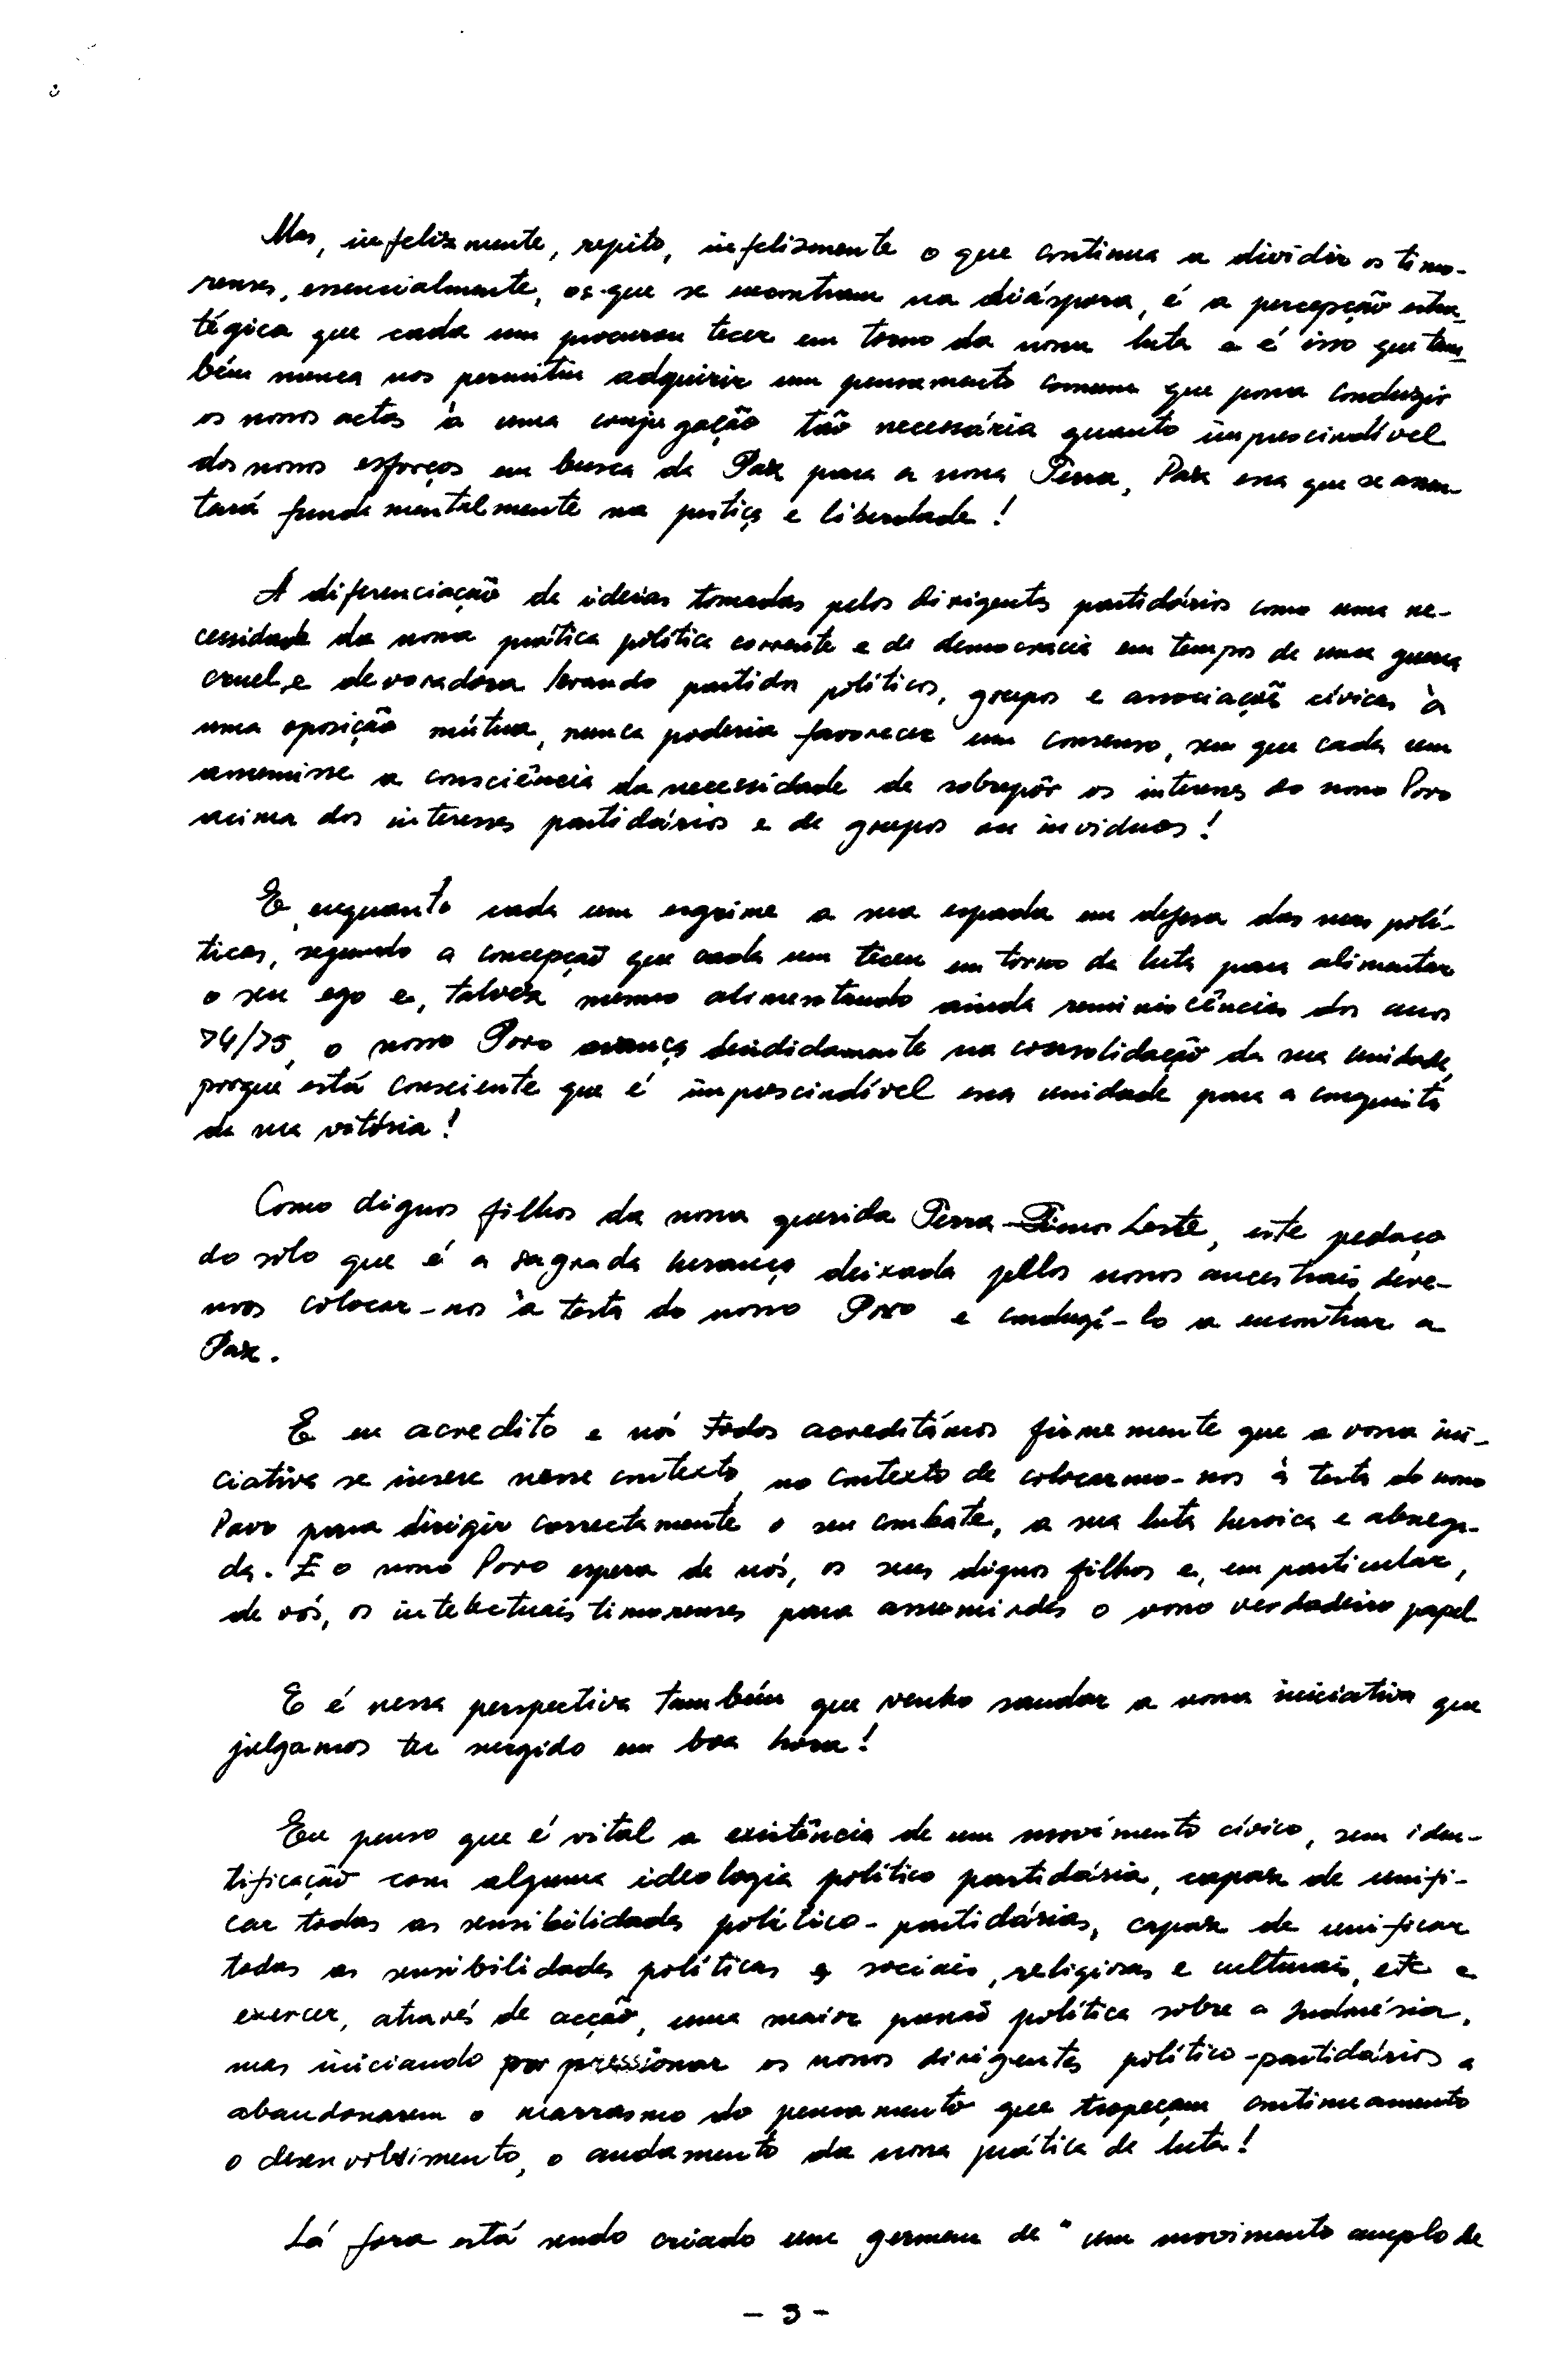 Mas, infelizmente, repito, infelizmente o que continua a dividir os timo-
renses, essencialmente, os que se encontram na diáspora, é a percepção estra-
tégica que cada um procurou tecer em torno da nossa luta e é isso que tam-
bém nunca nos permitiu adquirir um pensamento comum que possa conduzir
os nossos actos à uma conjugação tão necessária quanto imprescindível
dos nossos esforços em busca da Paz para a nossa Terra, Paz essa que se assen-
tará fundamentalmente na justiça e liberdade!
A diferenciação de ideias tomadas pelos dirigentes partidários como uma ne-
cessidade da nossa prática política corrente e de democracia em tempos de uma guerra
cruel e devoradora levando partidos políticos, grupos e associações cívicas à
uma oposição mútua, nunca poderia favorecer um consenso, sem que cada um
assumisse a consciência da necessidade de sobrepôr os interesses do nosso Povo
acima dos interesses partidários e de grupos ou invíduos!
E, enquanto cada um esgrime a sua espada em defesa das suas polí-
ticas, segundo a concepção que cada um teceu em torno da luta para alimentar
o seu ego e, talvez mesmo alimentando ainda reminiscências dos anos
74/75, o nosso Povo avança decididamente na consolidação da sua unidade,
porque está consciente que é imprescindível essa unidade para a conquista
da sua vitória!
Como dignos filhos da nossa querida Terra-Timor Leste, este pedaço
do solo que é a sagrada herança deixada pelos nossos ancestrais, deve-
mos colocar-nos à testa do nosso Povo e conduzí-lo a encontrar a
Paz.
E eu acredito e nós todos acreditámos firmemente que a vossa ini-
ciativa se insere nesse contexto, no contexto de colocarmo-nos à testa do nosso
Povo para dirigir correctamente o seu combate, a sua luta heroica e abnega-
da. E o nosso Povo espera de nós, os seus dignos filhos e, em particular,
de vós, os intelectuais timorenses para assumirdes o vosso verdadeiro papel
E é nessa perspectiva também que venho saudar a vossa iniciativa que
julgamos ter surgido em boa hora!
Eu penso que é vital a existência de um movimento cívico, sem iden-
tificação com alguma ideologia político partidária, capaz de unifi-
car todas as sensibilidades político-partidárias, capaz de unificar
todas as sensibilidades políticas e sociais, religiosas e culturais, etc e
exercer, através de acção, uma maior pressão política sobre a Indonésia,
mas iniciando por pressionar os nossos dirigentes político-partidários a
abandonarem o marrasmo do pensamento que tropeçam continuamente
o desenvolvimento, o andamento da nossa prática de luta!
Lá fora está sendo criado um germen de "um movimento amplo de
- 3 -